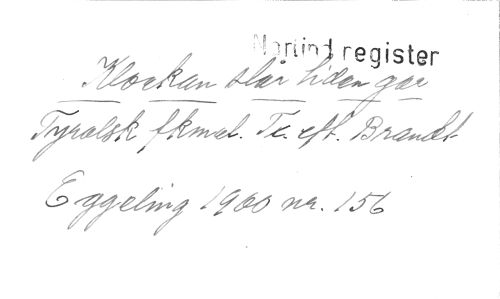 register
Klockan slår tiden går
Tyrolsk fkmel. Tx. eft. Brandt
Eggeling 1960 nr. 156